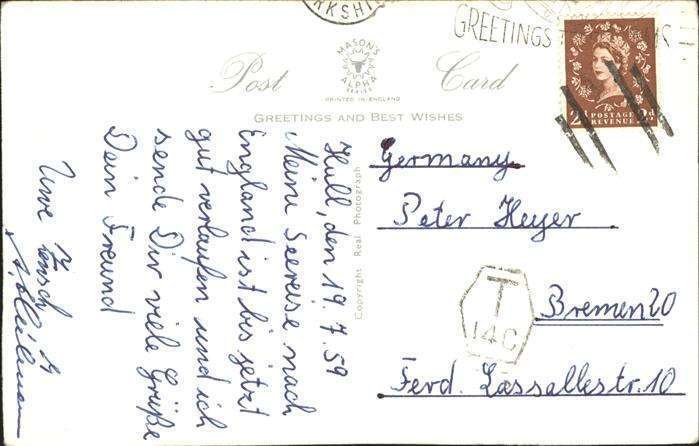 RKSHI
GREETINGS
Post Card
MASON'S
ALPHA
SERIES
PRINTED IN ENGLAND
GREETINGS AND BEST WISHES
2d POSTAGE 2d
REVENUE
Hull, den 19.7.59
Meine Seereise nach
England ist bis jetzt
gut verlaufen und ich
sende Dir viele Grüße
Dein Freund
Uwe
Copyright Real Photograph
Germany
Peter Heyer
T
14C
Bremen 20
Ferd. Lassallestr. 10